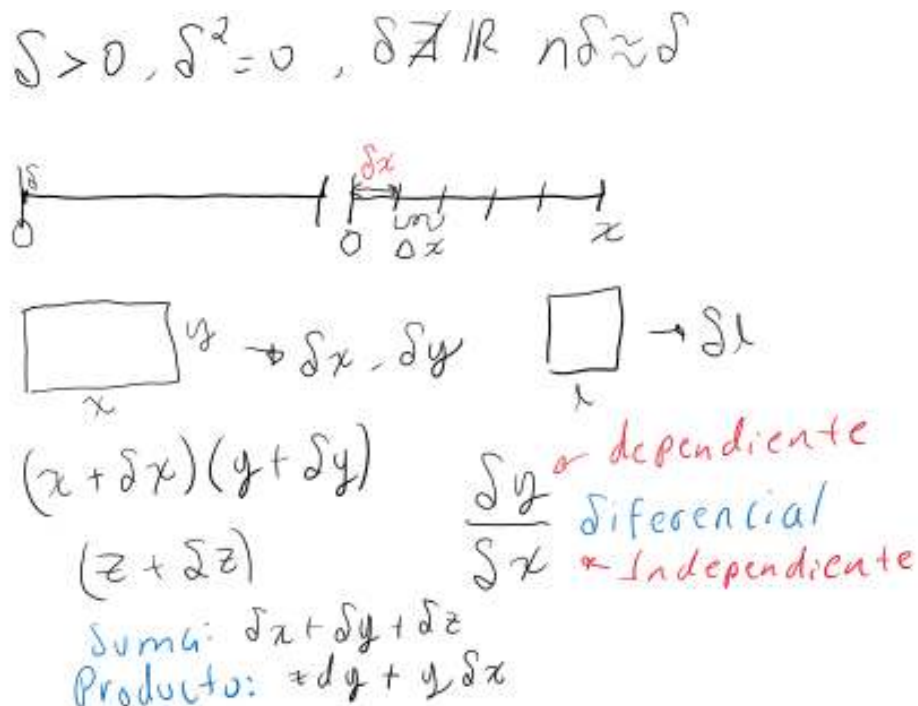 δ > 0 , δ² = 0 , δ ∄ ℝ nδ ≈ δ
δ δx
0 0 Δx x
y → δx , δy → δl
x l
(x + δx)(y + δy)
δy dependiente
— diferencial
δx Independiente
(z + δz)
Suma: δx + δy + δz
Producto: xdy + y δx